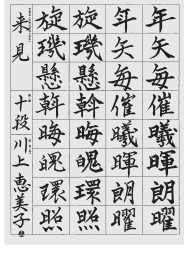 年矢毎催曦暉朗曜
年矢毎催曦暉朗曜
旋璣懸斡晦魄環照
旋璣懸斡晦魄環照
来見
十段 川上恵美子